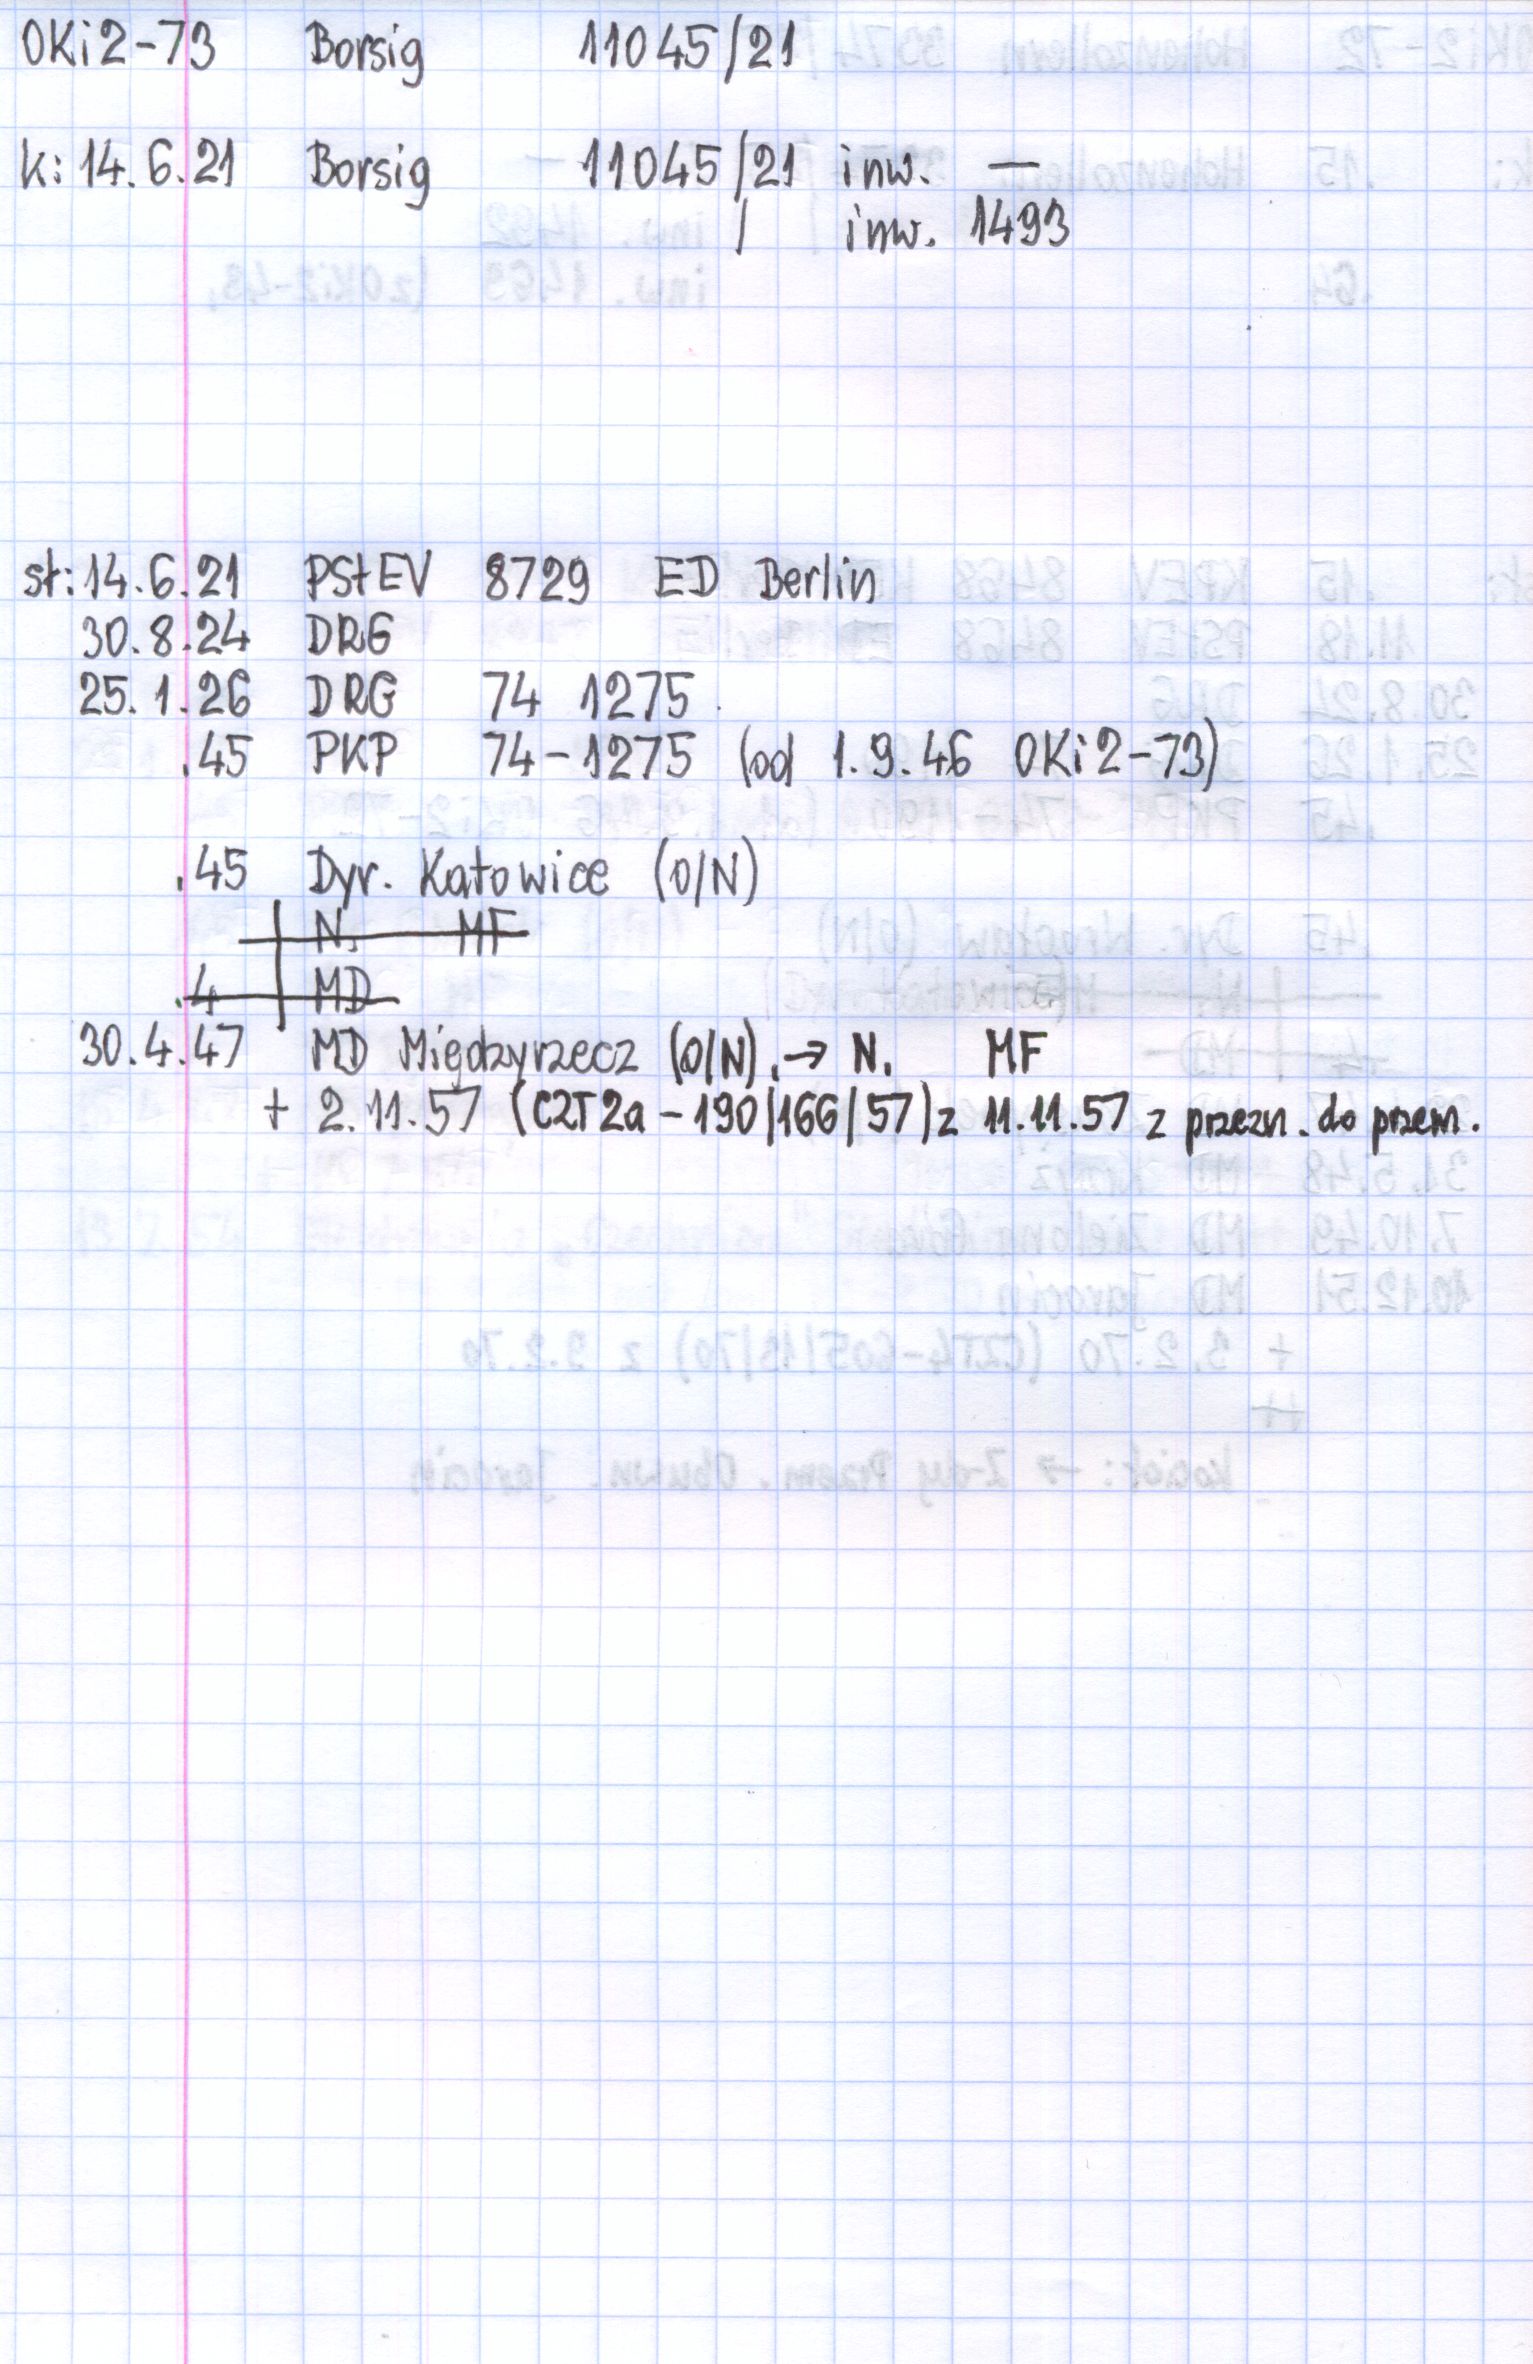 OKi2-73 Borsig 11045/21
k: 14.6.21 Borsig 11045/21 inw. —
/ inw. 1493
st: 14.6.21 PStEV 8729 ED Berlin
30.8.24 DRG
25.1.26 DRG 74 1275
.45 PKP 74-1275 (od 1.9.46 OKi2-73)
.45 Dyr. Katowice (O/N)
N. MF
.4 MD
30.4.47 MD Międzyrzecz (O/N). → N. MF
+ 2.11.57 (CZT2a-190/166/57) z 11.11.57 z przezn. do przem.